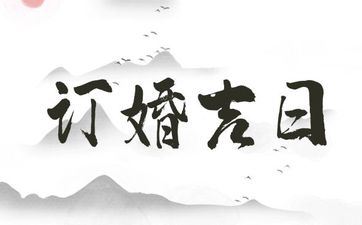 订婚吉日